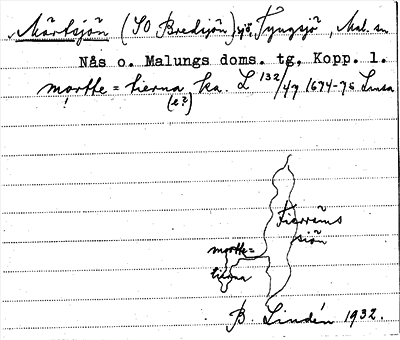 Mårtsjön (SO Bredsjön) sjö, Tyngsjö, Mal. sn
Nås o. Malungs doms. tg, Kopp. l.
mortte = tierna ka. L 132/47 1674-76
(e?)
Tiärnäms
siön
mortte=
tierna
B. Lindén 1932.